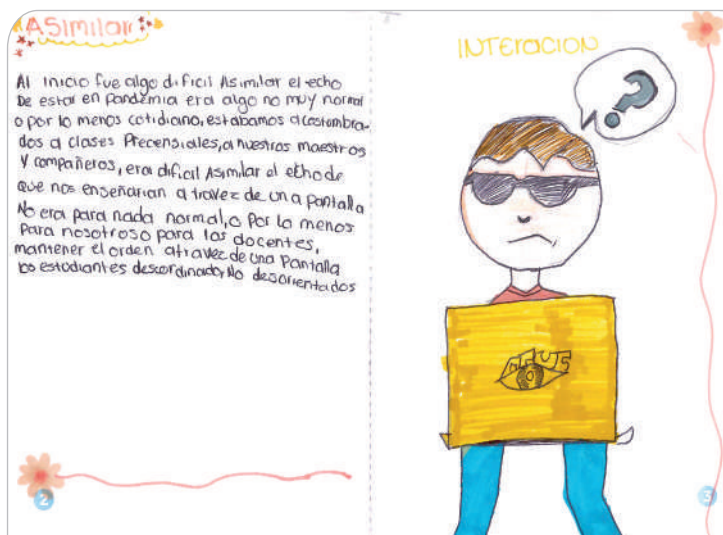 ASimilar
Al inicio fue algo dificil Asimilar el echo
De estar en pandemia era algo no muy normal
o por lo menos cotidiano, estabamos acostumbra-
dos a clases Precensiales, a nuestros maestros
y compañeros, era dificil Asimilar el echo de
que nos enseñarian a travez de una pantalla
No era para nada normal, o Por lo menos
Para nosotroso para los docentes,
mantener el orden atravez de una Pantalla
los estudiantes descordinado, No desorientados
2
INTERACION
?
3